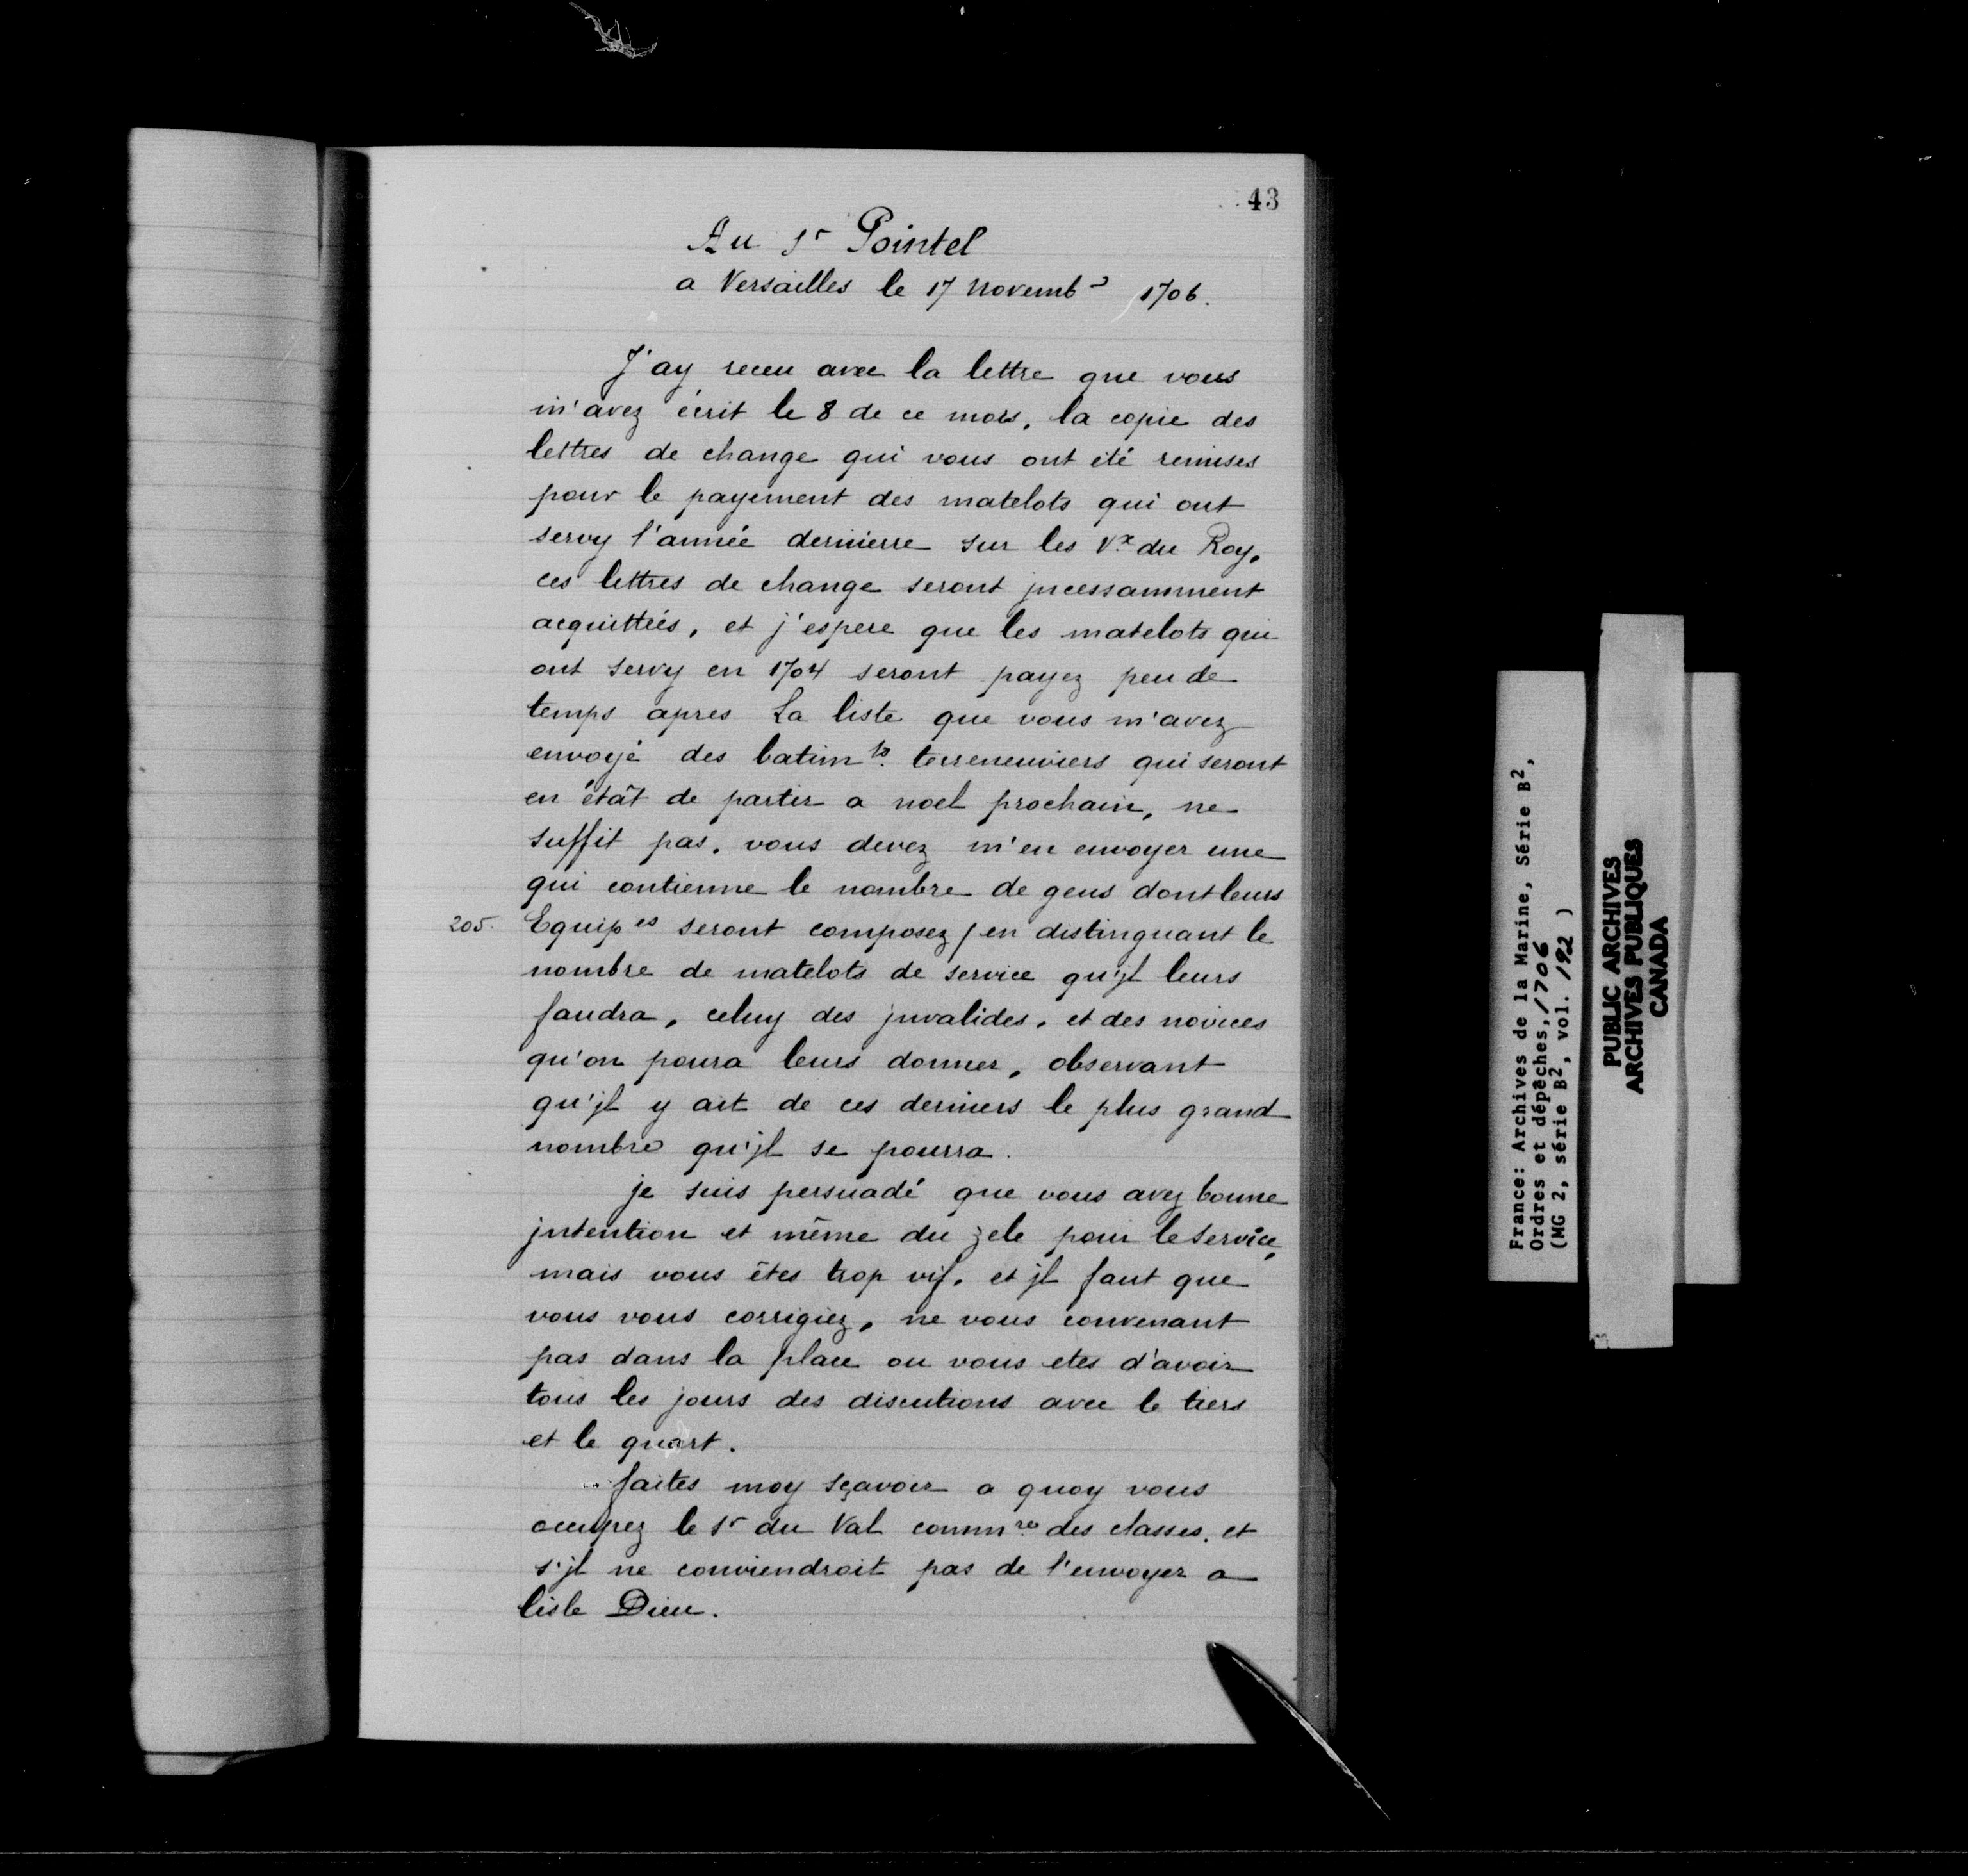 43
Au Sr Pointel
a Versailles le 17 Novembe 1706.
J'ay receu avec la lettre que vous
m'avez écrit le 8 de ce mois, la copie des
lettres de change qui vous ont été remises
pour le payement des matelots qui ont
servy l'année dernierre sur les Vx du Roy,
ces lettres de change seront jncessamment
acquittées, et j'espere que les matelots qui
ont servy en 1704 seront payez peu de
temps apres La liste que vous m'avez
envoyé des batimts terreneuviers qui seront
en état de partir a noel prochain, ne
suffit pas, vous devez m'en envoyer une
qui contienne le nombre de gens dont leurs
205. Equipes seront composez / en distinguant le
nombre de matelots de service qu'jl leurs
faudra, celuy des jnvalides, et des novices
qu'on poura leurs donner, observant
qu'jl y ait de ces derniers le plus grand
nombre qu'jl se pourra.
je suis persuadé que vous avez bonne
jntention et même du zele pour le service,
mais vous êtes trop vif, et jl faut que
vous vous corrigiez, ne vous convenant
pas dans la place ou vous etes d'avoir
tous les jours des discutions avec le tiers
et le quart.
faites moy sçavoir a quoy vous
occupez le Sr du Val commre des classes, et
s'jl ne conviendroit pas de l'envoyer a
lisle Dieu.
France: Archives de la Marine, Série B2,
Ordres et dépêches, 1706
(MG 2, série B2, vol. 192 )
PUBLIC ARCHIVES
ARCHIVES PUBLIQUES
CANADA